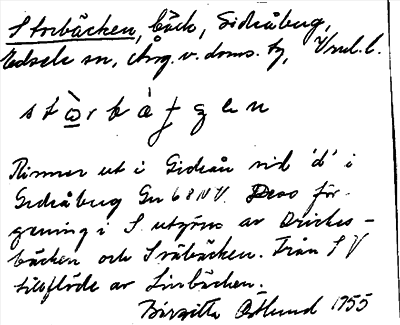 Storbäcken, bäck, Gideåberg,
Edsele sn, Ång. v. doms. tg, Vnrl. l.
Rinner ut i Gideån vid 'd' i
Gideåberg Gu 68 NV. Dess för-
grening i S utgöres av
bäcken och Sväbäcken. Från SV
tillflöde av Linbäcken.
Birgitta Östlund 1955